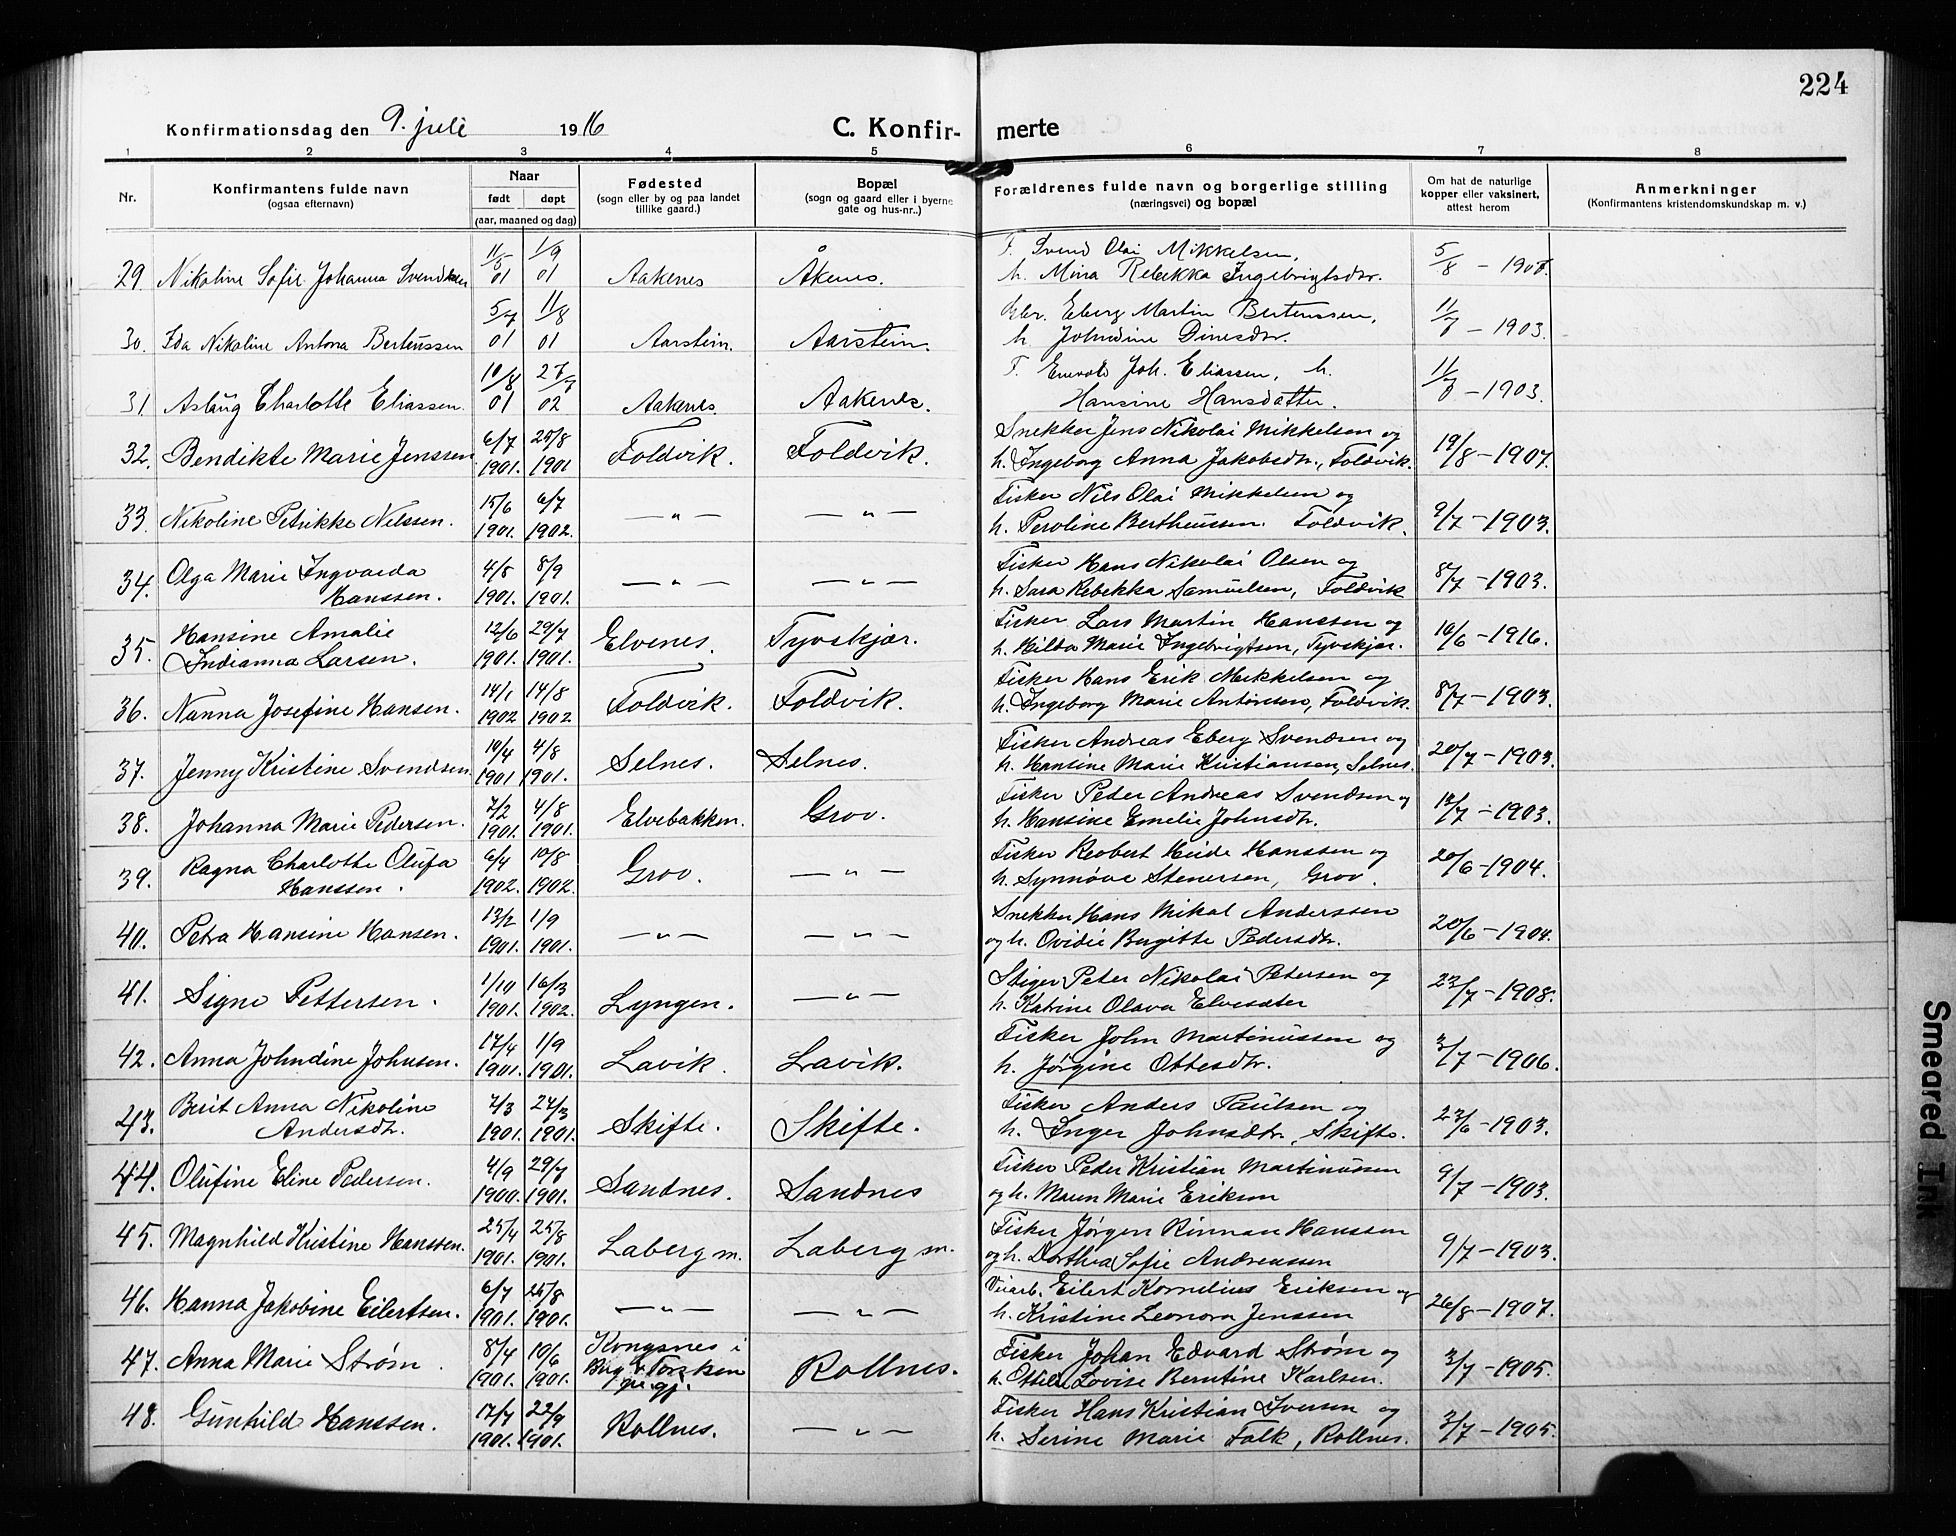 224
Konfirmationsdag den 9. juli 1916 C. Konfir- merte
1 2 3 4 5 6 7 8
Nr. Konfirmantens fulde navn (ogsaa efternavn) Naar født døpt (aar, maaned og dag) Fødested (sogn eller by og paa landet tillike gaard.) Bopæl (sogn og gaard eller i byerne gate og hus-nr..) Forældrenes fulde navn og borgerlige stilling (næringsvei) og bopæl Om hat de naturlige kopper eller vaksinert, attest herom Anmerkninger (Konfirmantens kristendomskundskap m. v.)
11/5 1/9 F. Svend Olai Mikkelsen, 5/8
29. Nikoline Sofie Johanna Svendsen 01 01 Aakenes Åkenes. h. Mina Rebekka Ingebrigtsdr.
5/7 11/8 Eberg Martin Bertenssen, 11/7 - 1903.
30. Ida Nikoline Antona Bertenssen 01 01 Aarstein. Aarstein. h. Johndine Dinesdr.
10/8 27/7 F. Enevold Joh. Eliassen, h. - 1903.
31. Aslaug Charlotte Eliassen. 01 02 Aakenes. Aakenes. Hansine Hansdatter.
6/7 25/8 Snekker Jens Nikolai Mikkelsen og
32. Bendikte Marie Jenssen 1901. 1901 Foldvik. Foldvik. h. Ingeborg Anna Jakobsdtr., Foldvik. 19/8 - 1907.
15/6 6/7 Fisker Nils Olai Mikkelsen og
33. Nikoline Petrikke Nilssen. 1901. 1902. — " — — " — h. Peroline Bertheussen. Foldvik. 9/7 - 1903.
Olga Marie Ingvarda 4/8 8/9 Fisker Hans Nikolai Olsen og
34. Hanssen. 1901. 1901. — " — — " — h. Sara Rebekka Samuelsen, Foldvik 8/7 - 1903.
Hansine Amalie 12/6 29/7 Fisker Lars Martin Hanssen og
35. Indianna Larsen. 1901. 1901. Elvenes. Tyvskjær. h. Hilda Marie Ingebrigtsen, Tyvskjær. 16/6 - 1916.
14/1 14/8 Fisker Hans Erik Mikkelsen og
36. Nanna Josefine Hansen. 1902 1902 Foldvik. Foldvik. h. Ingeborg Marie Antonsen, Foldvik. 8/7 - 1903.
10/4 4/8 Fisker Andreas Eberg Svendsen og
37. Jenny Kristine Svendsen 1901 1901. Selnes. Selnes. h. Hansine Marie Kristiansen, Selnes. 20/7 - 1903.
7/2 4/8 Fisker Peder Andreas Svendsen og
38. Johanna Marie Pedersen. 1901. 1901. Elvebakken. Grov. h. Hansine Emelie Johnsdtr. 12/7 - 1903.
Ragna Charlotte Olufa 6/4 10/8 Fisker Reobert Heide Hanssen og
39. Hanssen. 1902. 1902. Grov. — " — h. Synnøve Stenersen, Grov. 20/6 - 1904.
13/2 1/9 Snekker Hans Mikal Anderssen
40. Petra Hansine Hansen. 1901. 1901. — " — — " — og h. Ovidie Birgitte Pedersdtr. 20/6 - 1904.
1/10 16/3 Stiger Peter Nikolai Petersen og
41. Signe Pettersen. 1901. 1902. Lyngen. — " — h. Katrine Olava Elvesæter 22/7 - 1908.
17/4 1/9 Fisker John Martinussen og
42. Anna Johndine Johnsen. 1901. 1901. Lavik. Lavik. h. Jørgine Ottesdtr. 3/7 - 1906.
Berit Anna Nikoline 7/3 24/3 Fisker Anders Paulsen og
43. Andersdtr. 1901. 1901. Skifte. Skifte. h. Inger Johnsdtr., Skifte. 23/6 - 1903.
44. Olufine Eline Pedersen. 4/9 29/7 Fisker Peder Kristian Martinussen
1900. 1901. Sandnes. Sandnes og h. Maren Marie Eriksen 9/7 - 1903.
45. Magnhild Kristine Hanssen. 25/4 25/8 Fisker Jørgen Rinnan Hanssen
1901. 1901. Laberg m. Laberg m. og h. Dorthea Sofie Andreassen 9/7 - 1903.
6/7 25/8 Veiarb. Eilert Kornelius Eriksen og
46. Hanna Jakobine Eilertsen. 1901. 1901. — " — — " — h. Kristine Leonora Jenssen 26/8 - 1907.
47. Anna Marie Strøm. 8/4 10/6 Kongsnes i Fisker Johan Edvard Strøm og
1901. 1901. Torsken Rollnes. h. Lovise Berntine Karlsen. 3/7 - 1905.
prgj.
48. Gunhild Hanssen. 17/7 22/9 Fisker Hans Kristian Iversen og
1901. 1901. Rollnes. — " — h. Serine Marie Falk, Rollnes. 3/7 - 1905.
Smeared Ink